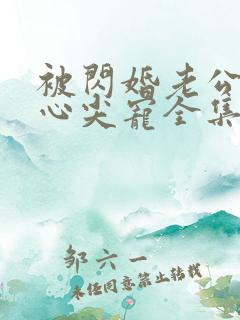 被閃婚老公
心尖寵全集
邹六一
未经同意禁止转载